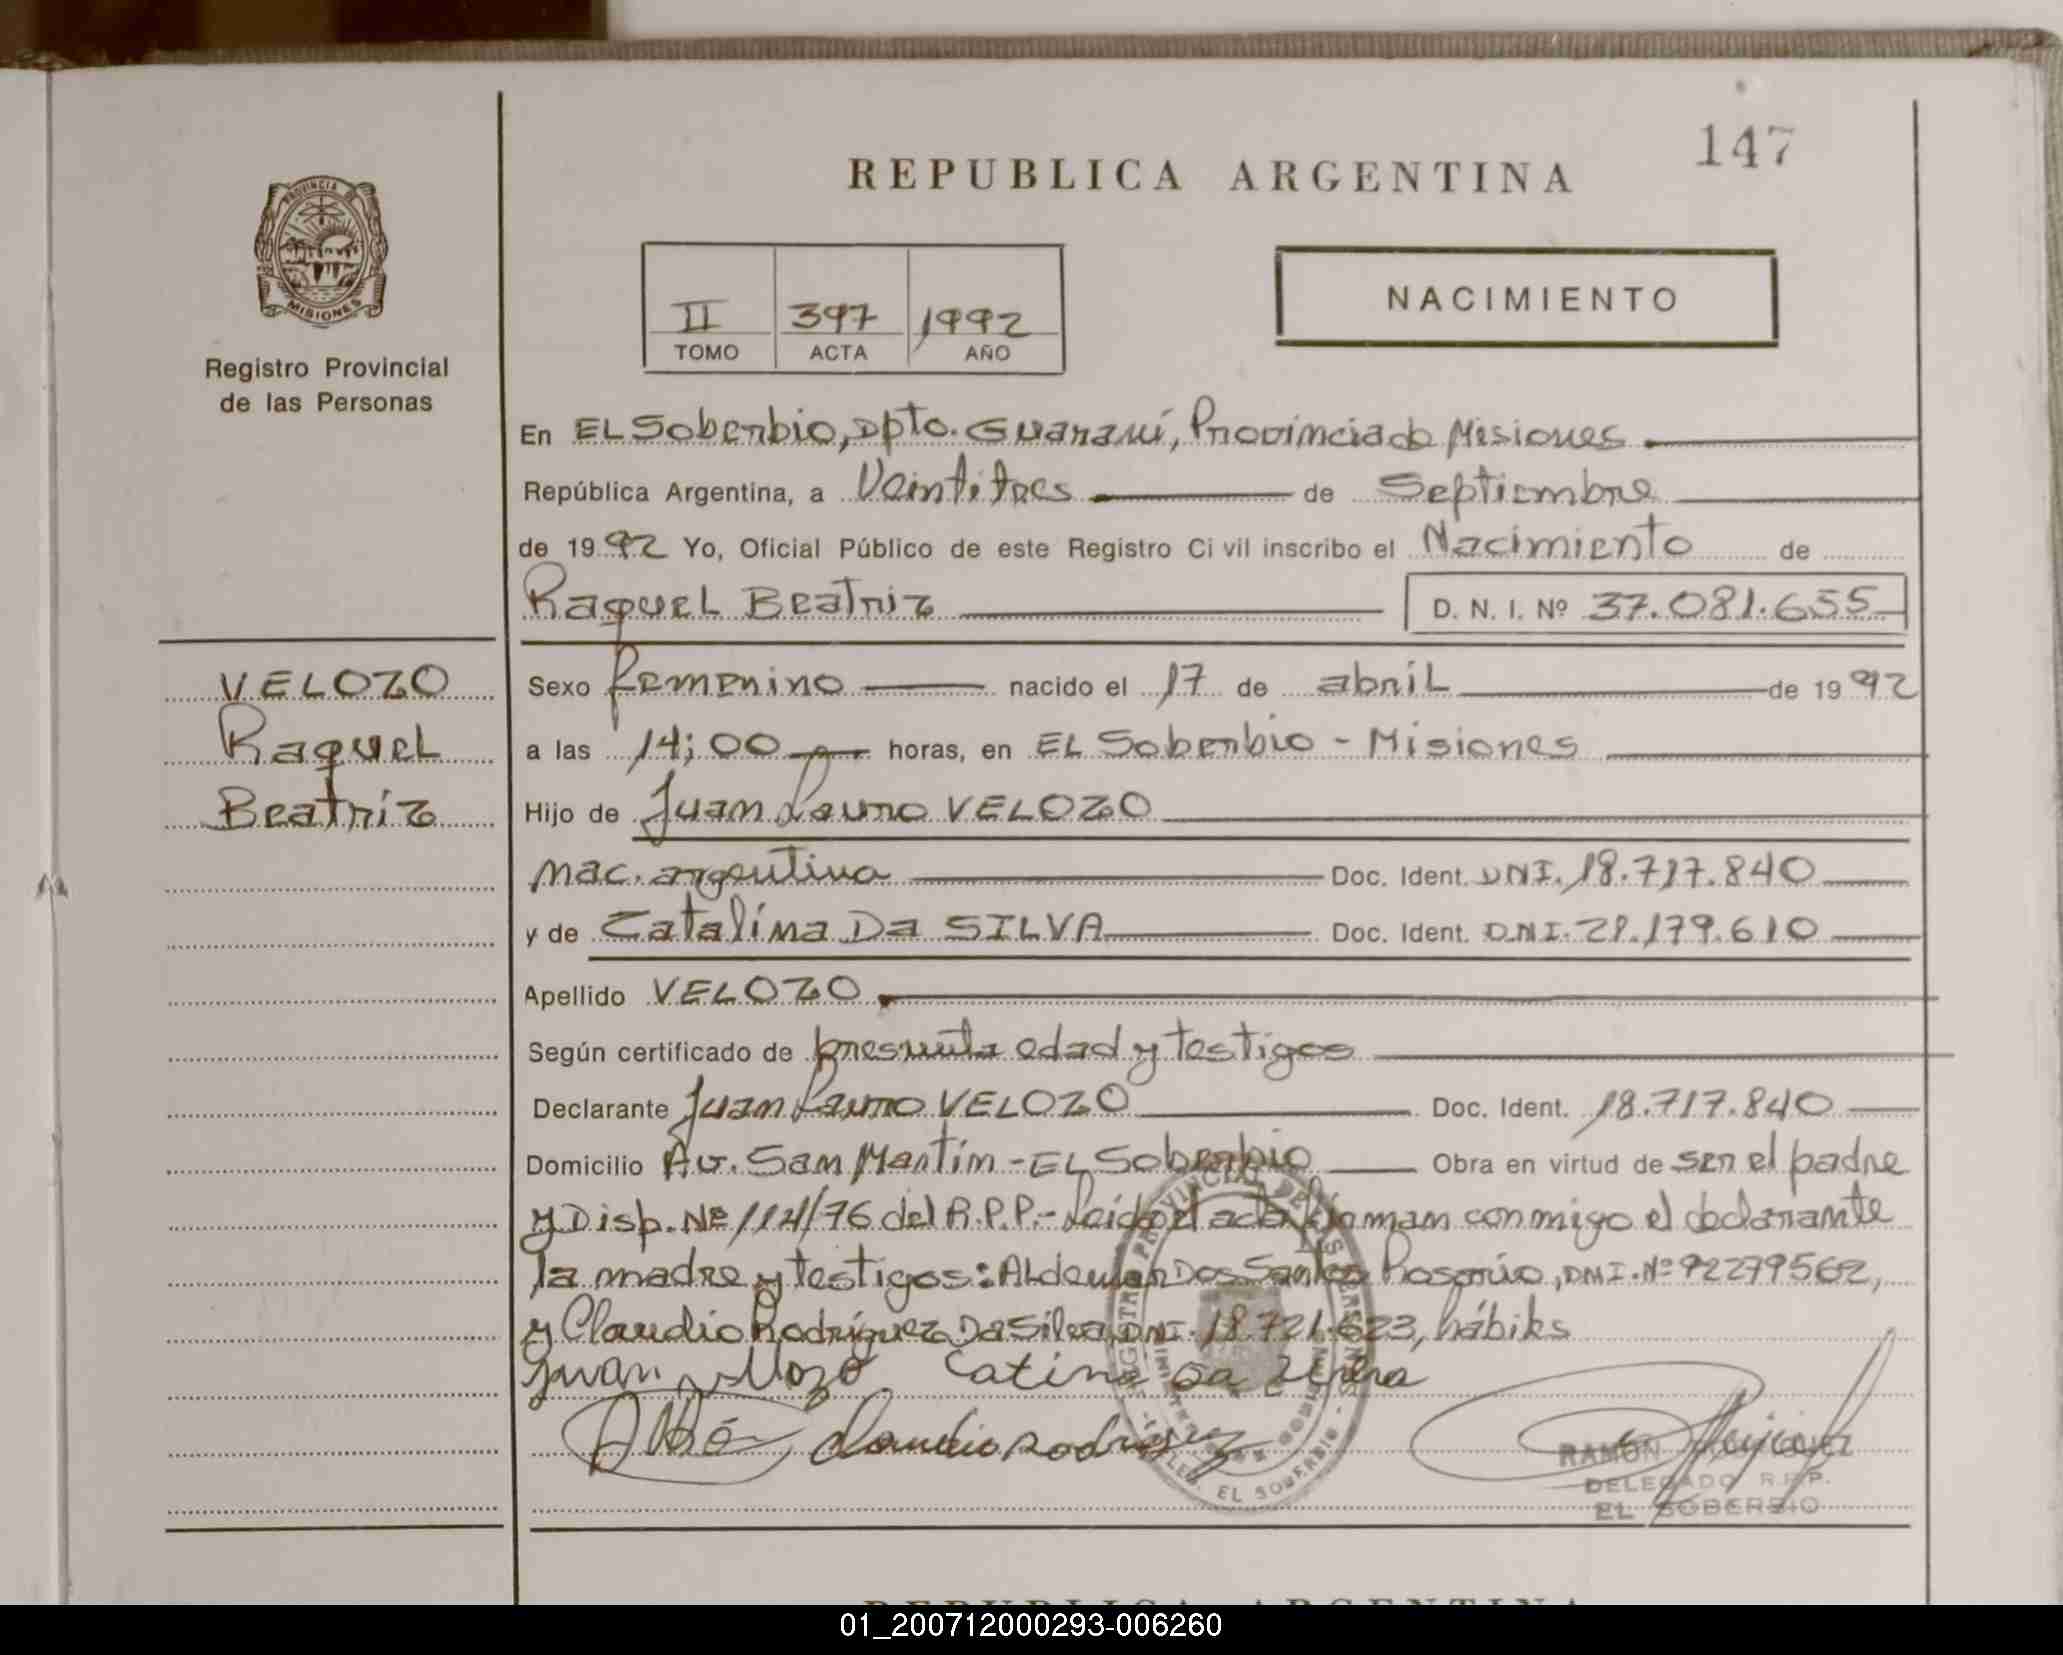 147
REPUBLICA ARGENTINA
PROVINCIA DE MISIONES
II 397 1992
TOMO ACTA AÑO
NACIMIENTO
Registro Provincial
de las Personas
En EL Soberbio, Dpto. Guaraní, Provincia de Misiones
República Argentina, a Veintitres de Septiembre
de 1992 Yo, Oficial Público de este Registro Civil inscribo el Nacimiento de
Raquel Beatriz D. N. I. Nº 37.081.655
VELOZO
Raquel
Beatriz
Sexo femenino nacido el 17 de abril de 1992
a las 14;00 horas, en EL Soberbio - Misiones
Hijo de Juan Lauro VELOZO
nac. argentina Doc. Ident. DNI. 18.717.840
y de Catalina Da SILVA Doc. Ident. DNI. 28.179.610
Apellido VELOZO
Según certificado de presunta edad y testigos
Declarante Juan Lauro VELOZO Doc. Ident. 18.717.840
Domicilio Av. San Martín - EL Soberbio Obra en virtud de ser el padre
y Disp. Nº 114/76 del R.P.P.- Leída el acta firman conmigo el declarante
la madre y testigos: Aldemar Dos Santos Rosario, DNI. Nº 92279562,
y Claudio Rodríguez Da Silva DNI. 18.721.623, hábiles
Claudio Rodriguez
RAMON
DELEGADO R.P.P.
EL SOBERBIO
REPUBLICA ARGENTINA
01_200712000293-006260